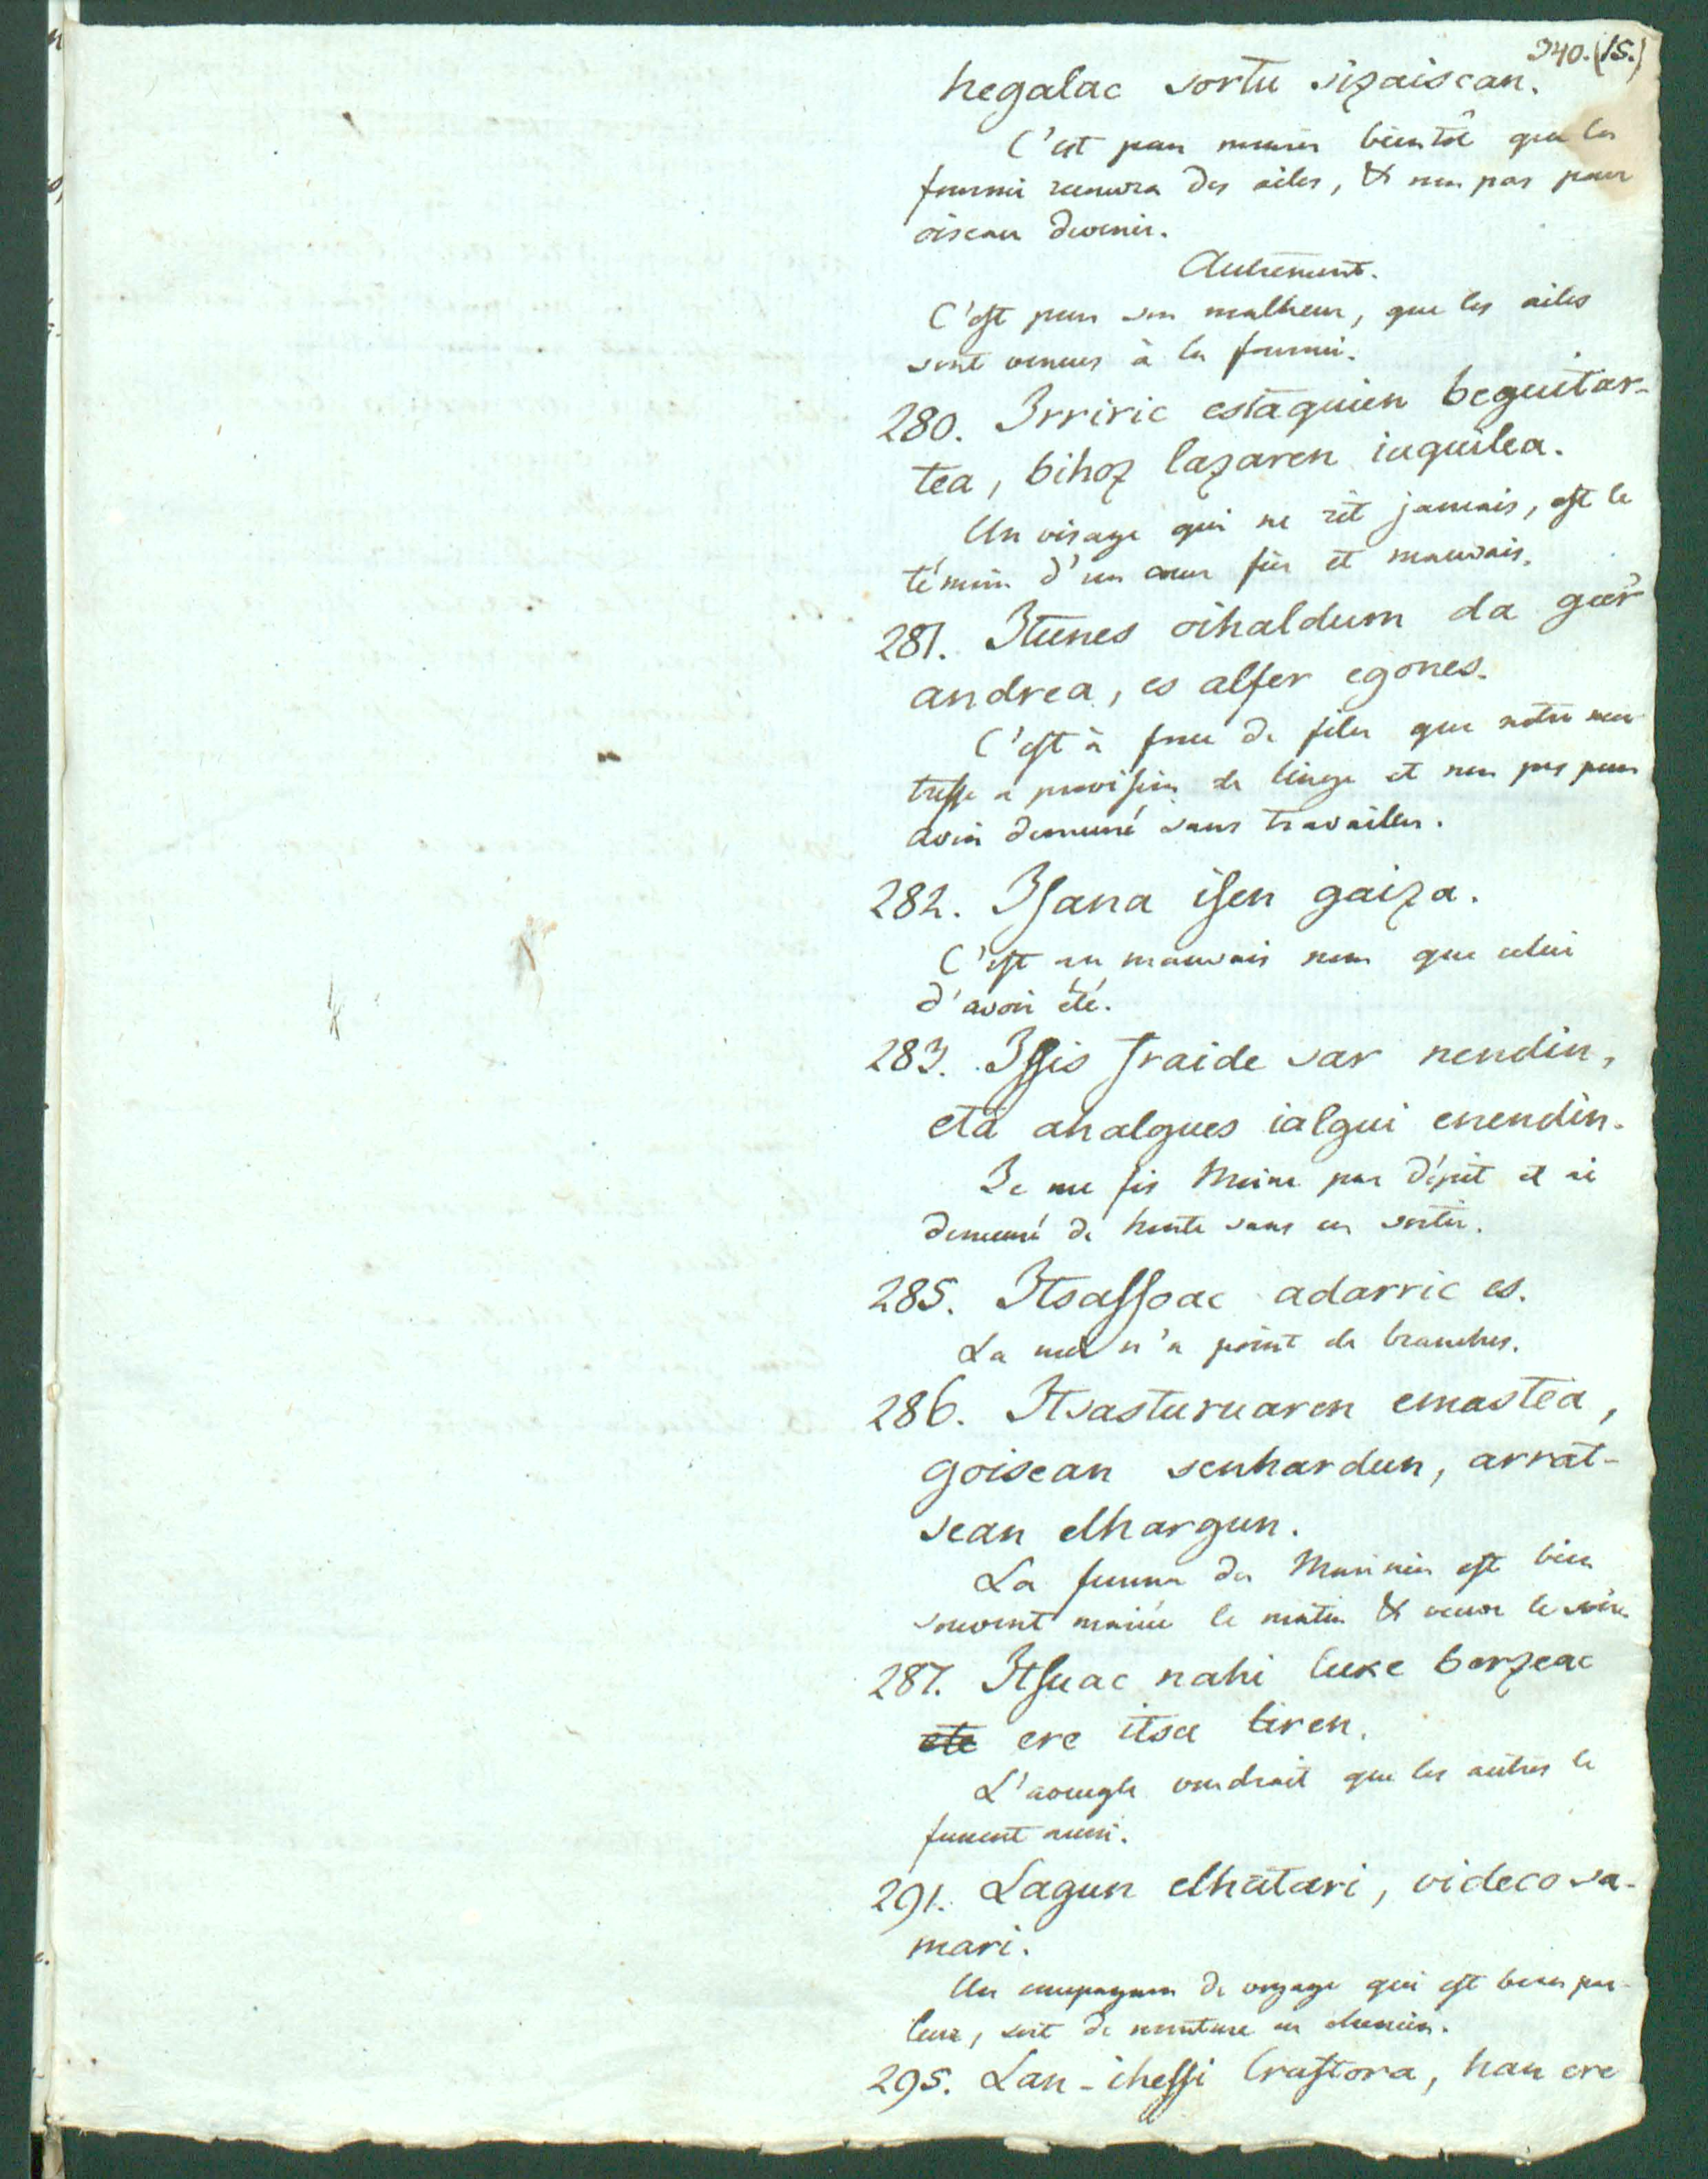 340.(15.)
hegalac sortu sizaiscan.
C'est pour mourir bientôt que la
fourmi recevra des ailes, & non pas pour
oiseau devenir.
Autrement.
C'est pour son malheur, que les ailes
sont venues à la fourmi.
280. Irriric estaquien beguitar-
tea, bihoz lazaren iaquilea.
Un visage qui ne rit jamais, est le
témoin d'un cœur fier et mauvais.
281. Itunes oihaldum da gur
andrea, es alfer egones.
C'est à force de filer que notre mai-
tresse a provision de linge et non pas pour
avoir demeuré sans travailler.
282. Isana isen gaiza.
C'est un mauvais nom que celui
d'avoir été.
283. Issis fraide sar nendin,
eta ahalgues ialgui enendin.
Je me fis Moine par dépit et ai
demeuré de honte sans en sortir.
285. Itsassoac adarric es.
La mer n'a point de branches.
286. Itsasturuaren emastea,
goisean senhardun, arrat-
sean elhargun.
La femme du Marinier est bien
souvent mariée le matin & veuve le soir.
287. Itsuac nahi luke berzeac
ete ere itsu liren.
L'aveugle voudrait que les autres le
fussent aussi.
291. Lagun elhatari, videco sa-
mari.
Un compagnon de voyage qui est beau par-
leur, sert de monture en chemin.
295. Lan-ihessi lrastora, han ere